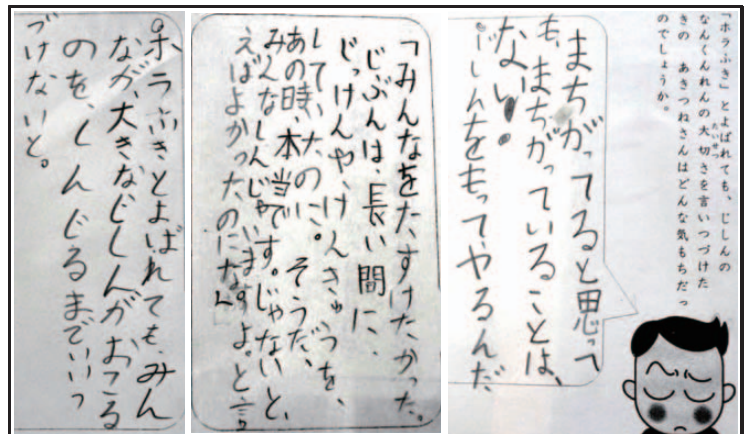 「ホラふき」とよばれても、じしんの
なんくんれんの大切さを言いつづけた
たいせつ
きの　あきつねさんはどんな気もちだっ
のでしょうか。
まちがってると思って
も、まちがっていることは、
ない！
じしんをもってやるんだ
「みんなをたすけたかった。
じぶんは、長い間に、
じっけんや、けんきゅうを、
していたのに。そうだ、
あの時、本当です。じゃないと、
みんなしんじゃいますよ。と言
えばよかったのにな」
ホラふきとよばれても、みん
なが、大きなじしんがおこる
のを、しんじるまでいいつ
づけないと。